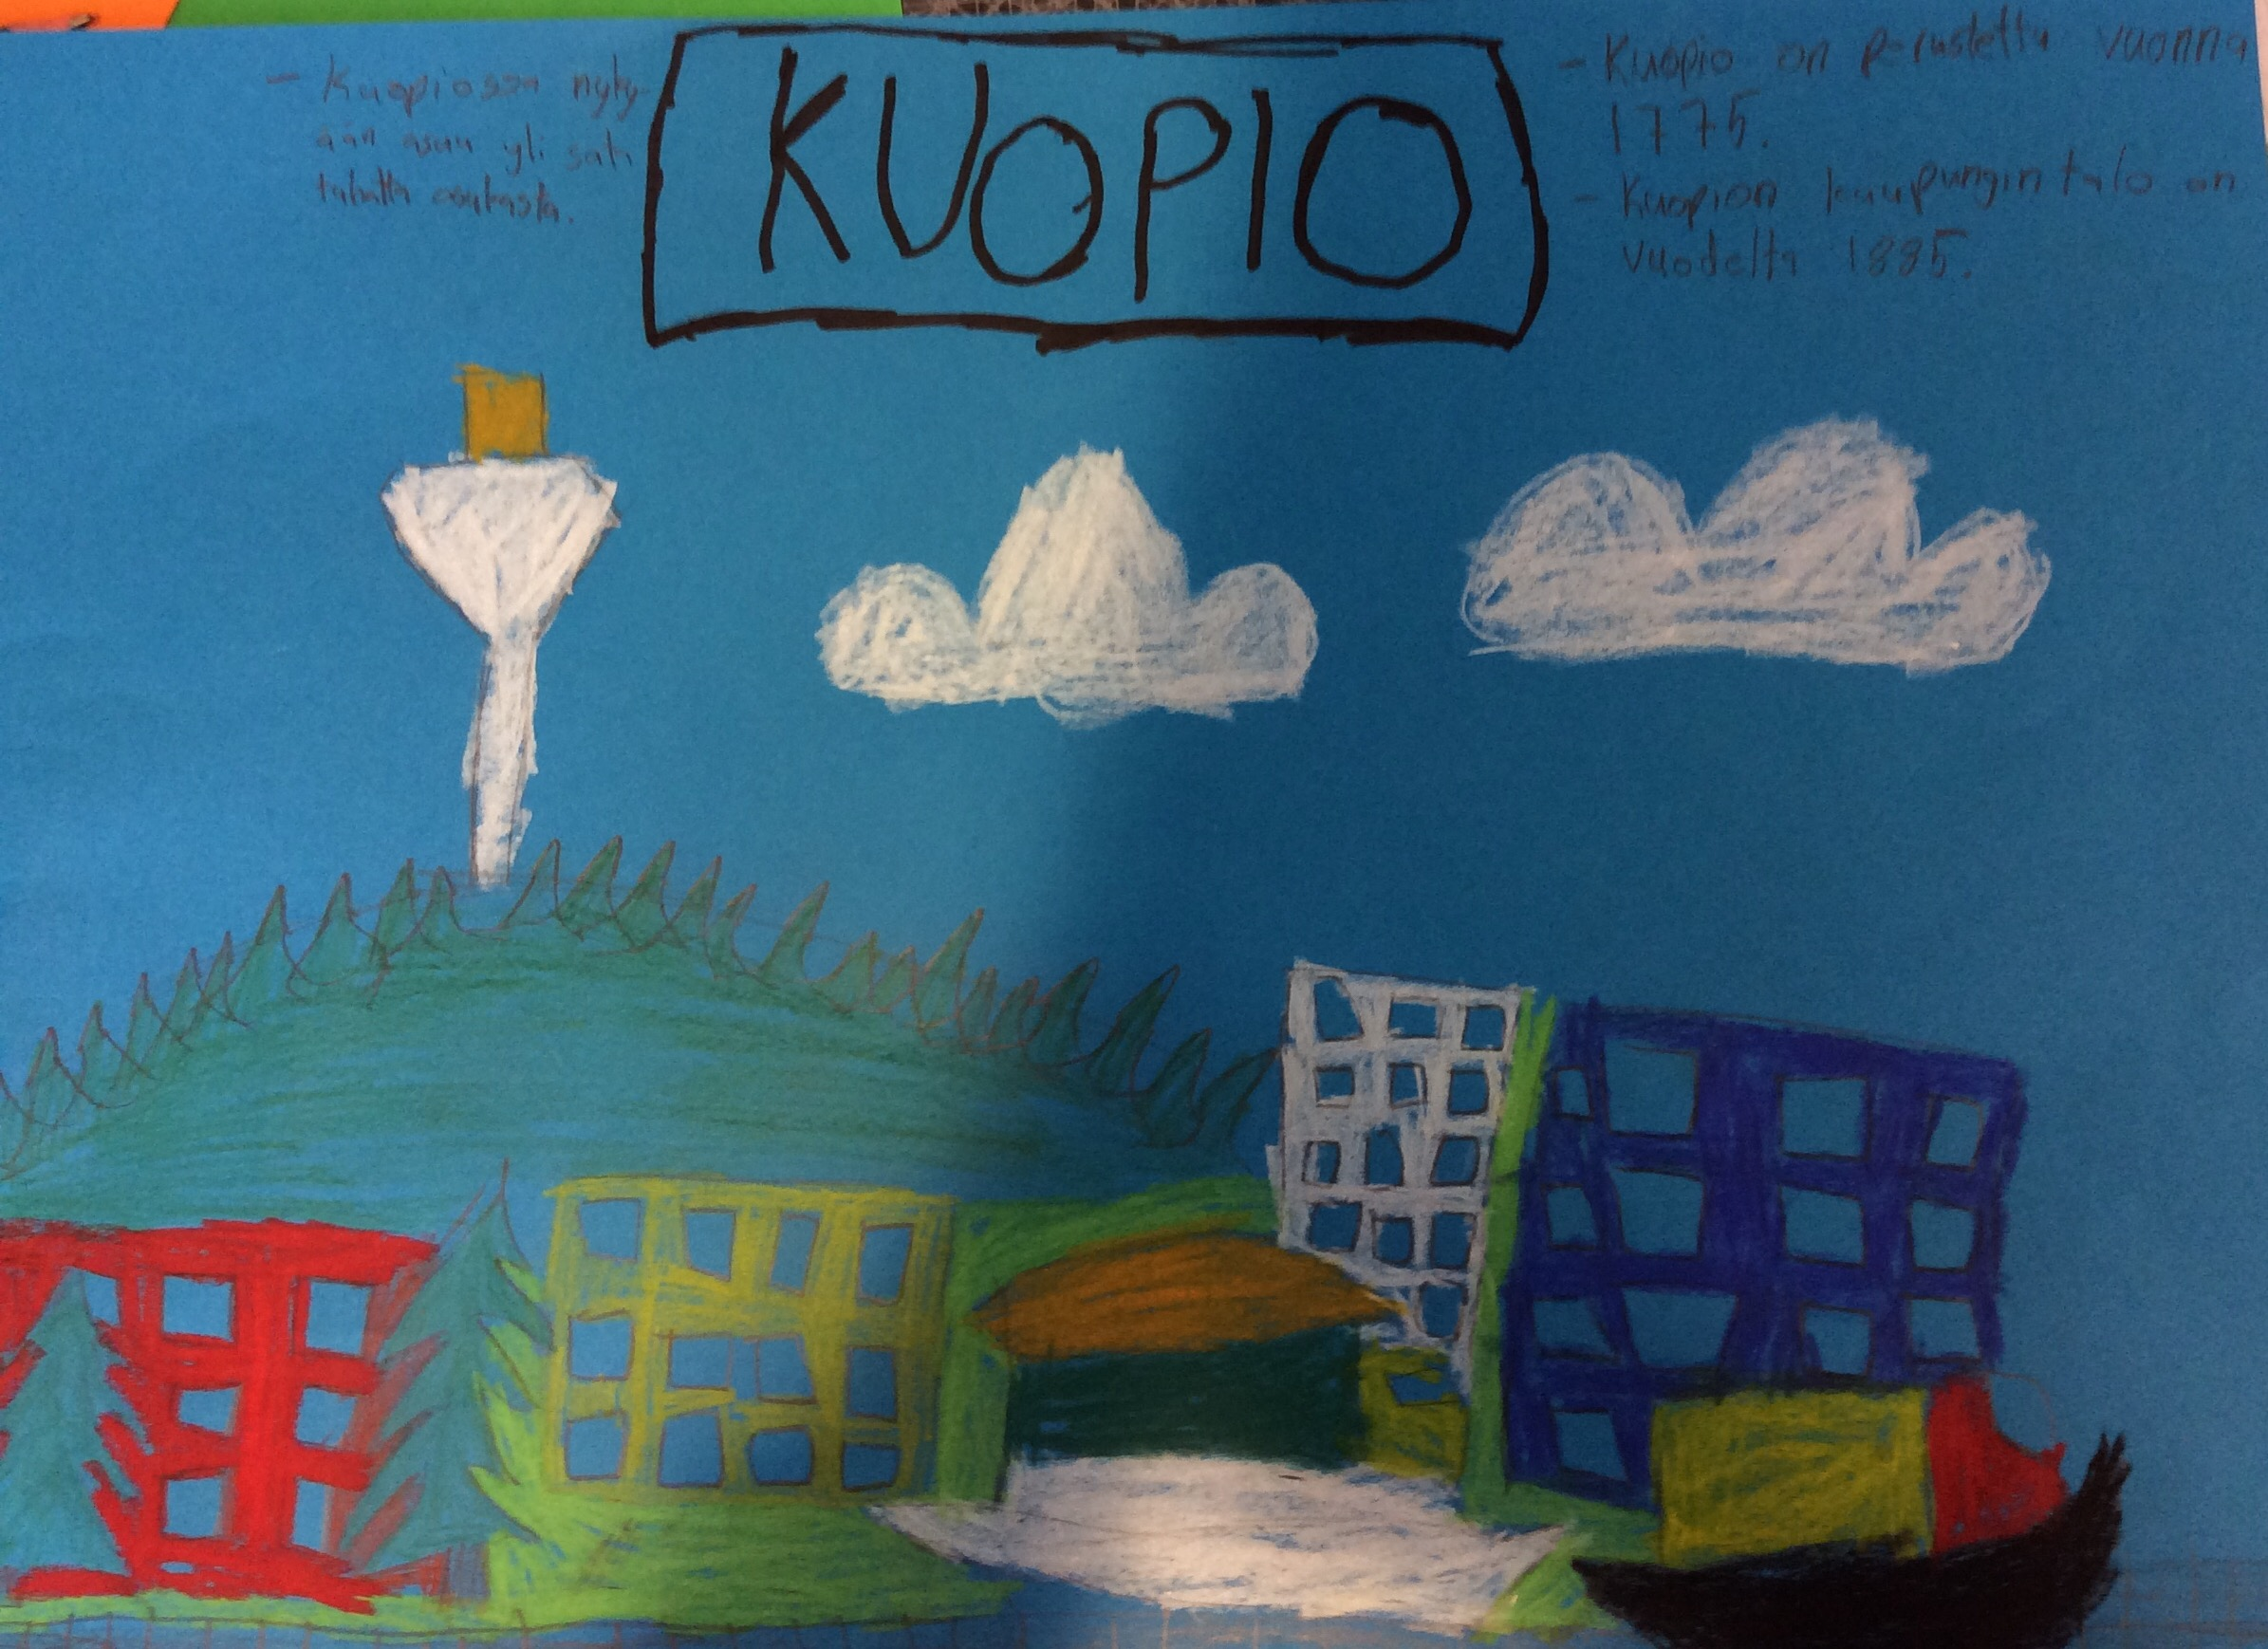 KUOPIO
- Kuopiossa nyky-
ään asuu yli sata
tuhatta asukasta.
- Kuopio on perustettu vuonna
1775.
- Kuopion kaupungintalo on
vuodelta 1885.